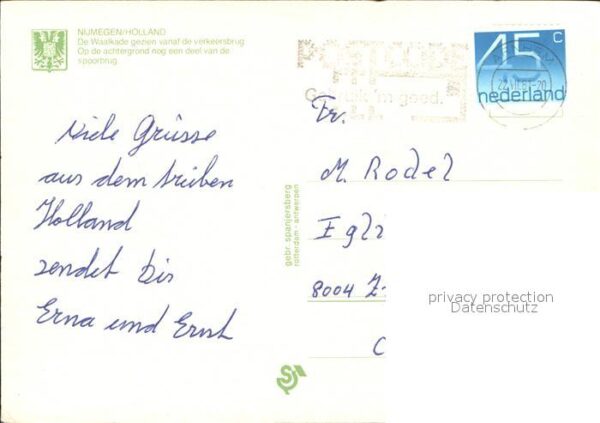 NIJMEGEN/HOLLAND
De Waalkade gezien vanaf de verkeersbrug
Op de achtergrond nog een deel van de
spoorbrug
POSTCODE
Gebruik 'm goed.
45 c
nederland
Viele Grüsse
aus dem trüben
Holland
sendet bis
Erna und Ernst
gebr. spanjersberg
rotterdam - antwerpen
Fr.
M. Rodel
Egli
8004 Z
C
privacy protection
Datenschutz